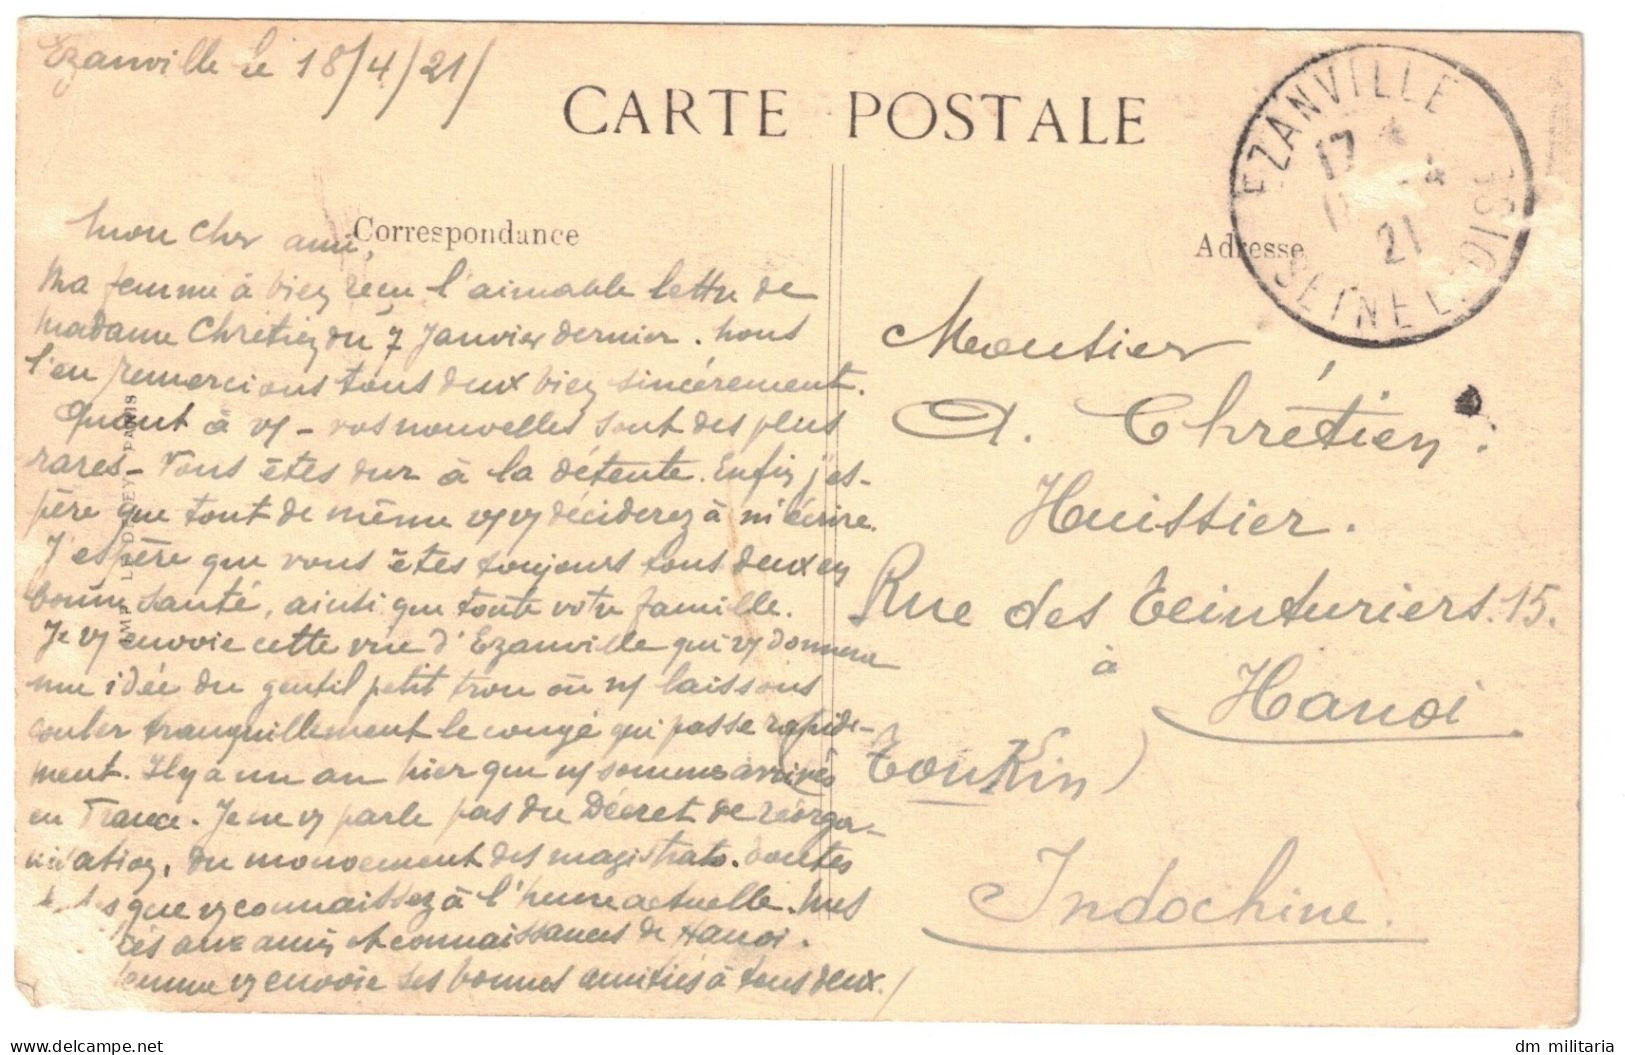 Ezanville le 18/4/21/
CARTE POSTALE
EZANVILLE
17
4
21
SEINE ET OISE
Correspondance
Adresse
Mon cher ami,
Ma femme à bien reçu l'aimable lettre de
Madame Chrétien du 7 Janvier dernier. Nous
l'en remercions tous deux bien sincèrement.
Quant à vs - vos nouvelles sont des plus
rares - Vous êtes dur à la détente. Enfin j'es-
père que tout de même vs vs déciderez à m'écrire.
J'espère que vous êtes toujours tous deux en
bonne santé, ainsi que toute votre famille.
Je vs envoie cette vue d'Ezanville qui vs donnera
une idée du gentil petit trou où ns laissons
couler tranquillement le congé qui passe rapide-
ment. Il y a un an hier que ns sommes arrivés
en France. Je ne vs parle pas du Décret de réorga-
nisation, du mouvement des magistrats. toutes
que vs connaissez à l'heure actuelle. Mes
aux amis et connaissances de Hanoi.
femme vs envoie ses bonnes amitiés à tous deux./
IMP. L'H PARIS
Monsier
A. Chrétien.
Huissier.
Rue des Teinturiers. 15.
à
Hanoi.
(Tonkin)
Indochine.
dm militaria